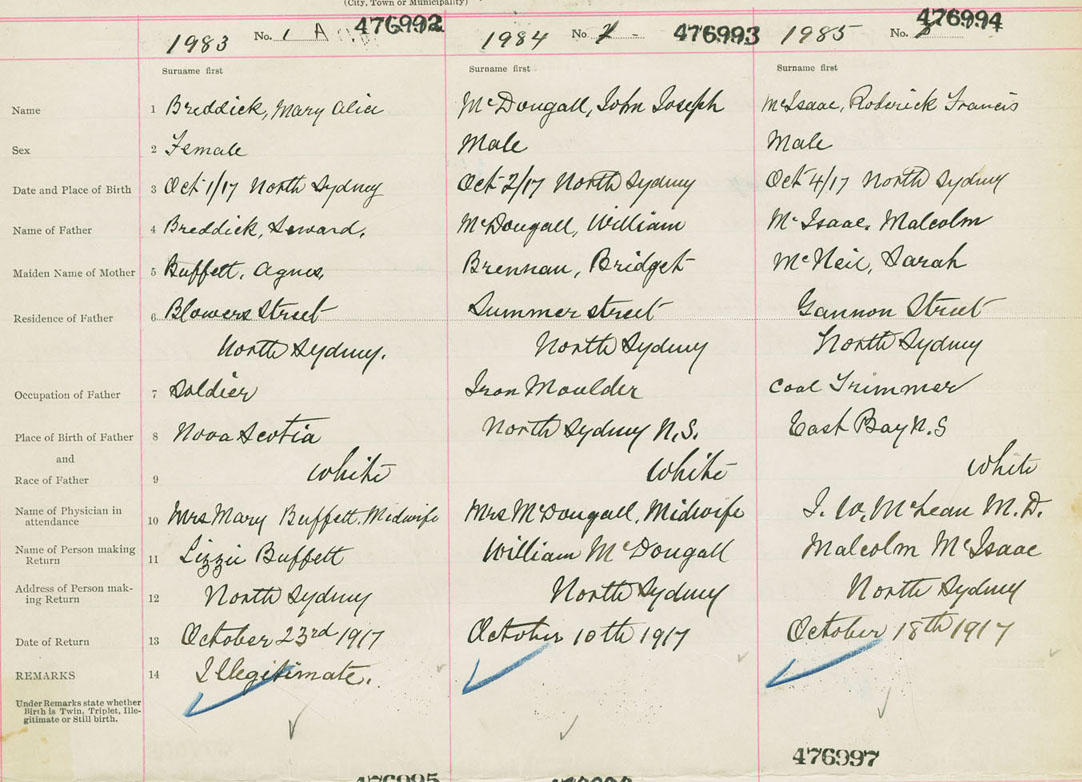 (City, Town or Municipality)
1983 No. 1 A 476992
1984 No 2 - 476993
1985 No. 3 476994
Surname first Surname first Surname first
Name 1 Breddick, Mary Alice McDougall, John Joseph McIsaac, Roderick Francis
Sex 2 Female Male Male
Date and Place of Birth 3 Oct 1/17 North Sydney Oct 2/17 North Sydney Oct 4/17 North Sydney
Name of Father 4 Breddick, Seward. McDougall, William McIsaac, Malcolm
Maiden Name of Mother 5 Buffett, Agnes, Brennan, Bridget McNeil, Sarah
Residence of Father 6 Blowers Street Summer street Gannon Street
North Sydney. North Sydney North Sydney
Occupation of Father 7 Soldier Iron Moulder Coal Trimmer
Place of Birth of Father 8 Nova Scotia North Sydney N.S. East Bay N.S
and
Race of Father 9 white white white
Name of Physician in attendance 10 Mrs Mary Buffett, Midwife Mrs McDougall, Midwife J. W. McLean M.D.
Name of Person making Return 11 Lizzie Buffett William McDougall Malcolm McIsaac
Address of Person mak-
ing Return 12 North Sydney North Sydney North Sydney
Date of Return 13 October 23rd 1917 October 10th 1917 October 18th 1917
REMARKS 14 Illegitimate.
Under Remarks state whether
Birth is Twin, Triplet, Ille-
gitimate or Still birth.
476997
476995